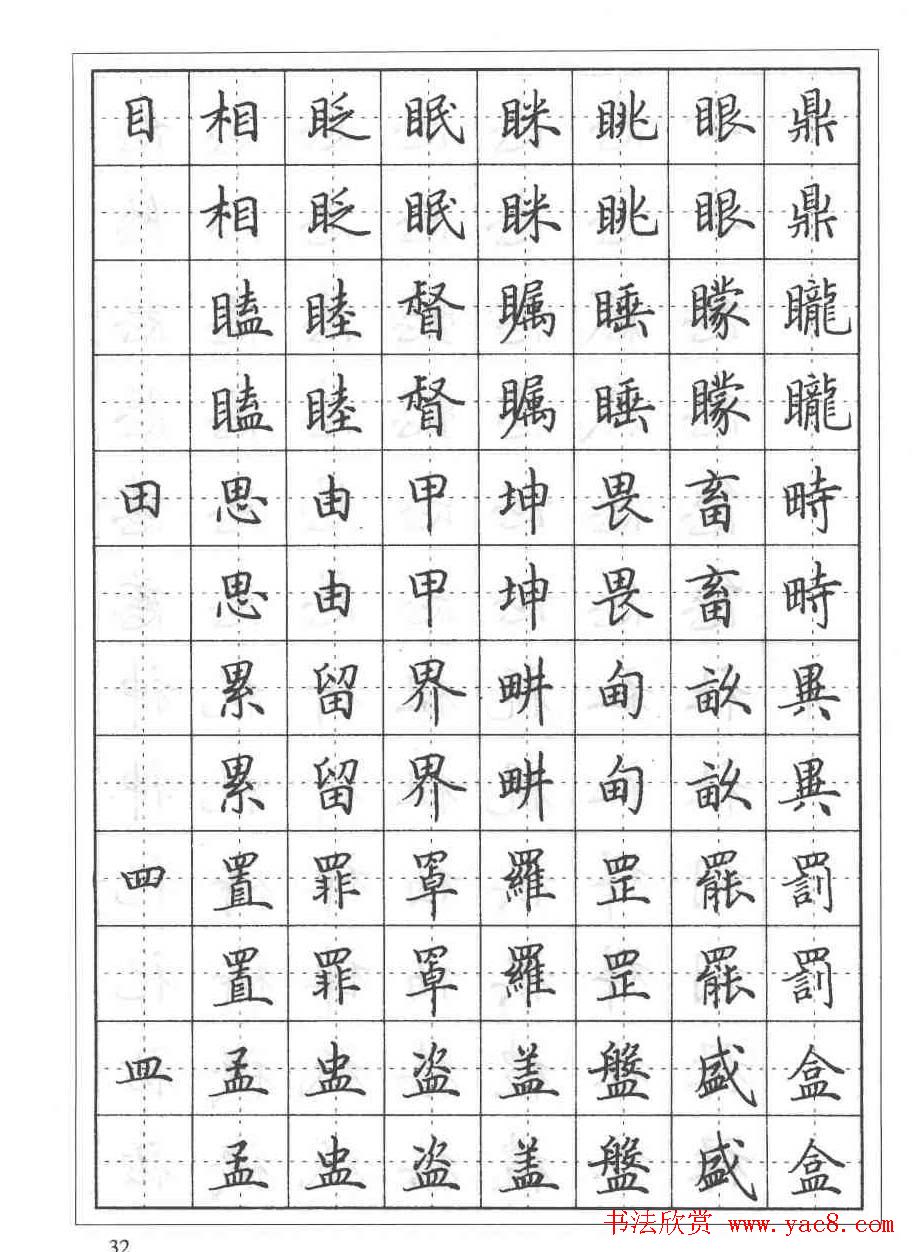 目相眨眠眯眺眼鼎
相眨眠眯眺眼鼎
瞌睦督瞩睡矇矓
瞌睦督瞩睡矇矓
田思由甲坤畏畜畤
思由甲坤畏畜畤
累留界畊甸畝異
累留界畊甸畝異
罒置罪罩羅罡罷罰
置罪罩羅罡罷罰
皿孟盗盖盤盛盒
孟盗盖盤盛盒
书法欣赏 www.yac8.com
32